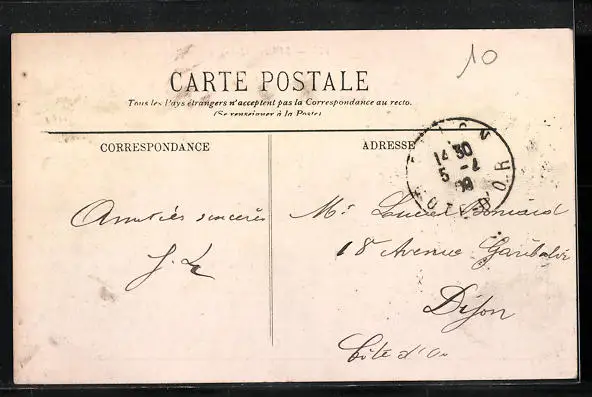 10
CARTE POSTALE
Tous les Pays étrangers n'acceptent pas la Correspondance au recto.
(Se renseigner à la Poste)
CORRESPONDANCE
ADRESSE
DIJON
14 30
5 -4
09
COTE D'OR
Amitiés sincères
J. L
Mr Lucien Bernard
18 Avenue Garibaldi
Dijon
Côte d'Or